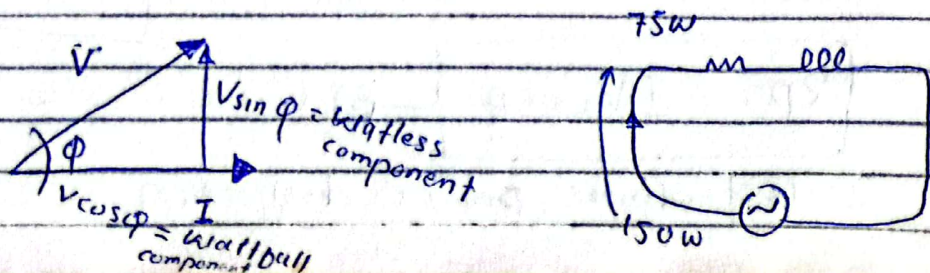 V
V sin φ = watless
component
φ
V cos φ = wattbull
component
I
75W
150W